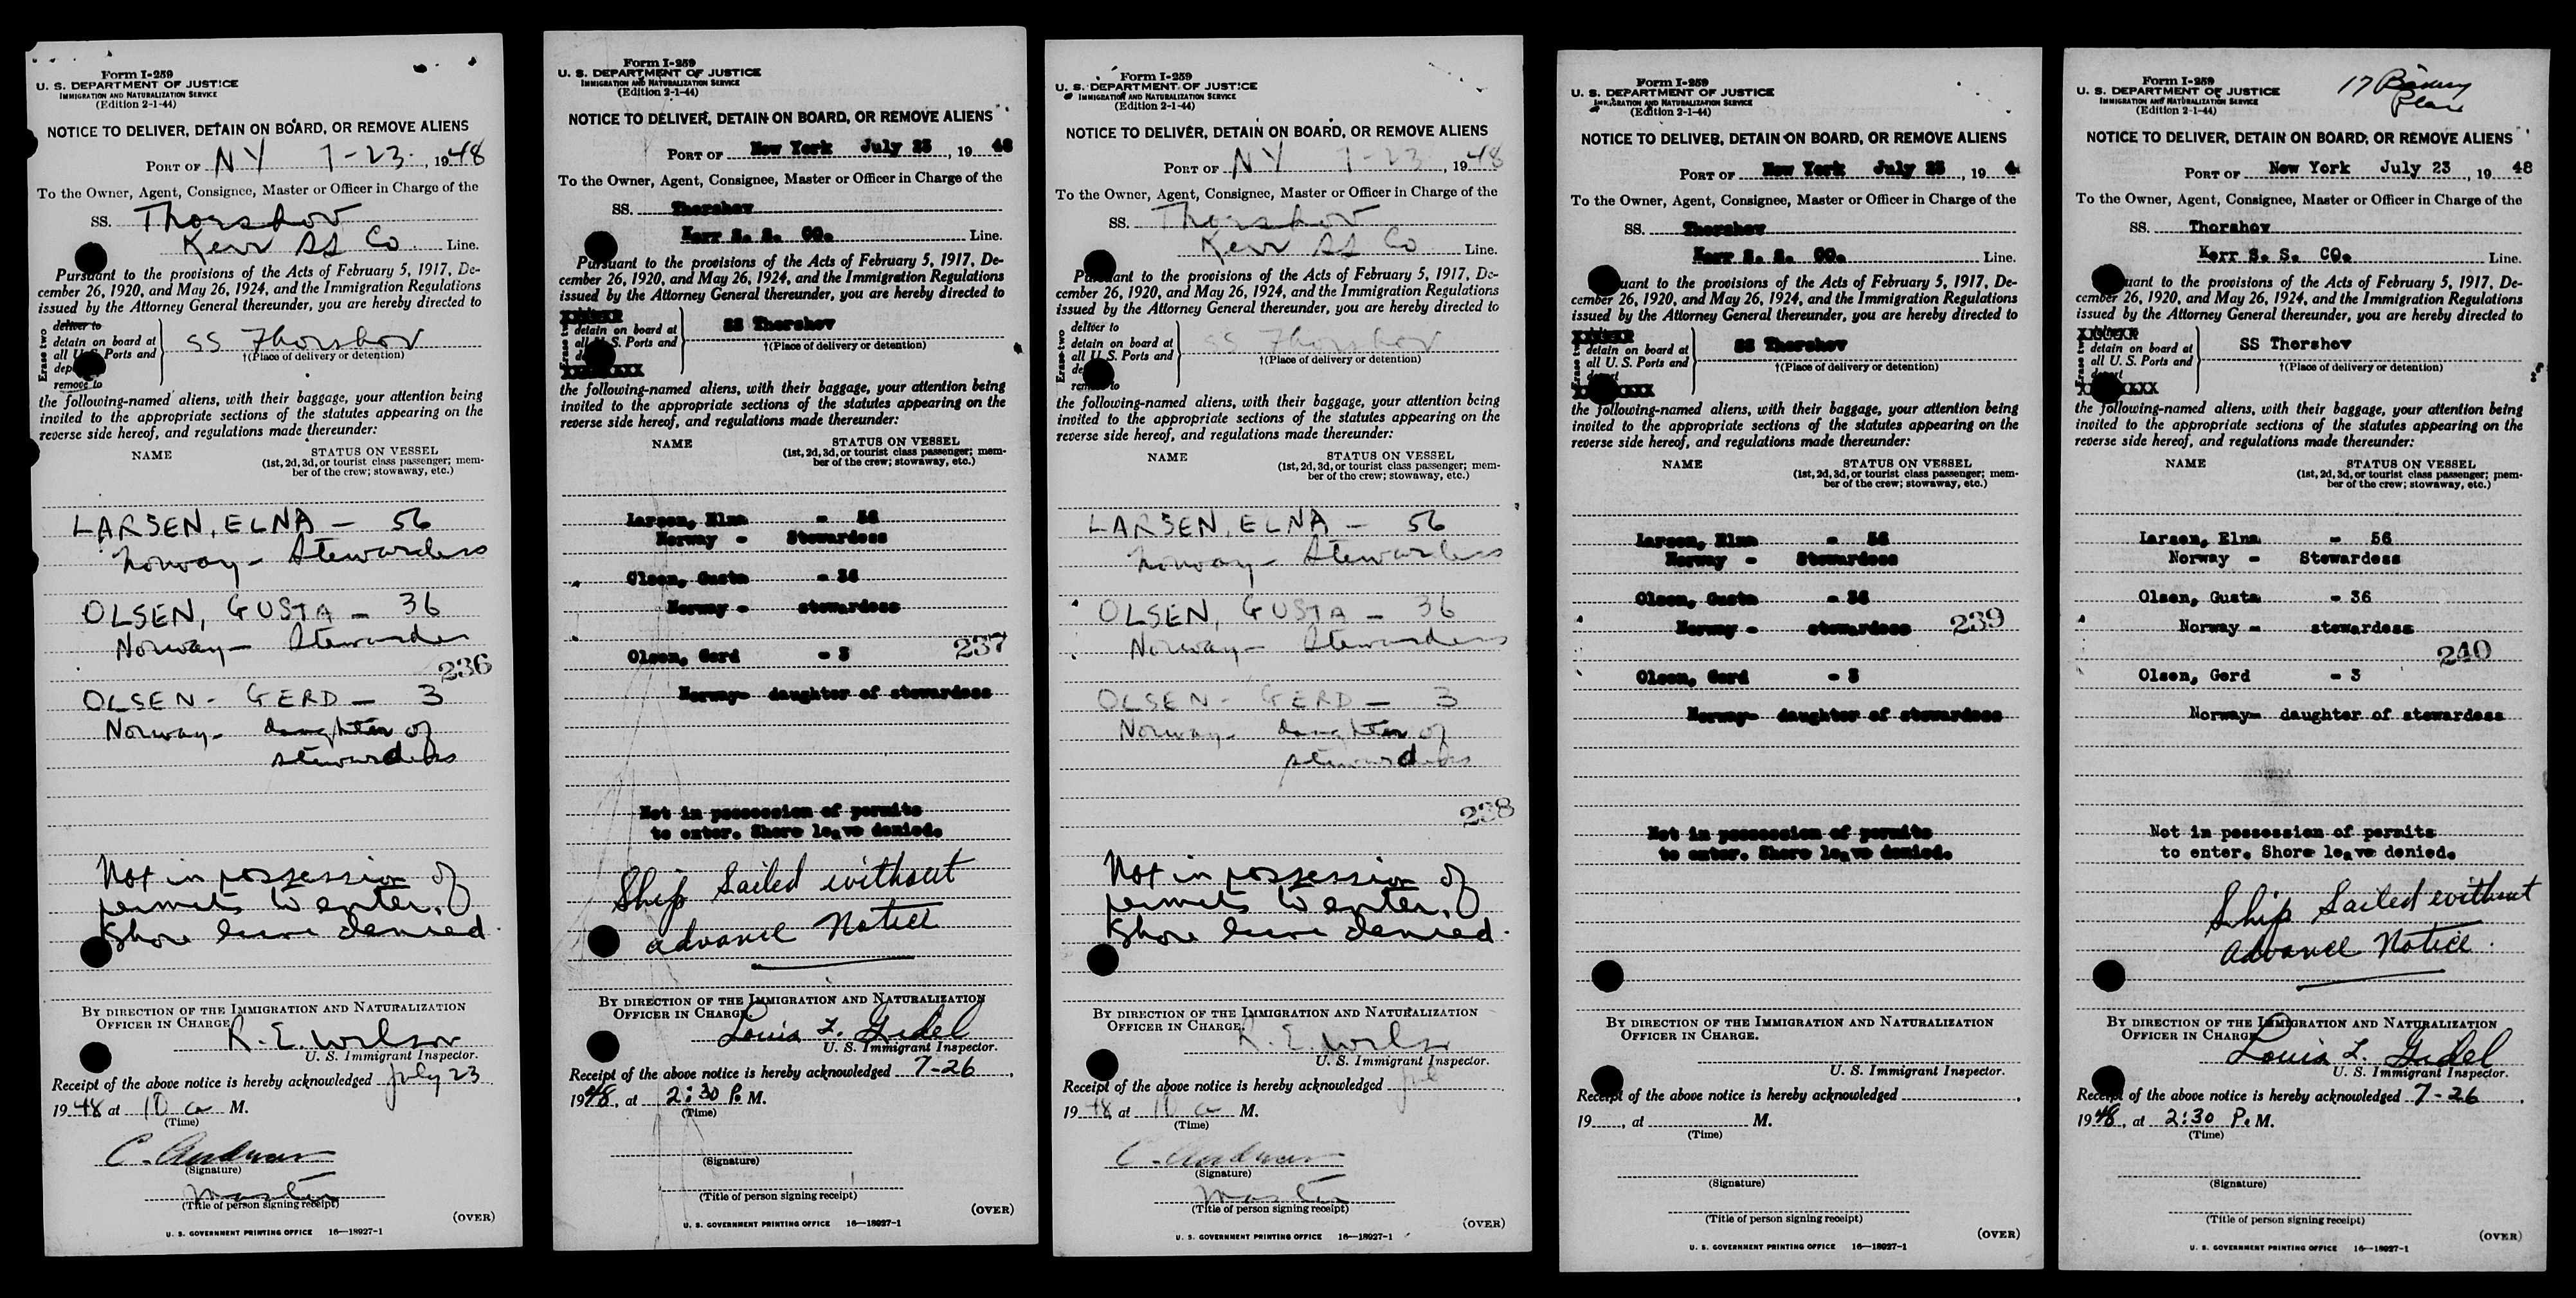 Form I-259
U. S. DEPARTMENT OF JUSTICE
IMMIGRATION AND NATURALIZATION SERVICE
(Edition 2-1-44)
NOTICE TO DELIVER, DETAIN ON BOARD, OR REMOVE ALIENS
PORT OF NY 7-23-, 1948
To the Owner, Agent, Consignee, Master or Officer in Charge of the
SS. Thorshov
Kerr SS Co Line.
Pursuant to the provisions of the Acts of February 5, 1917, De-
cember 26, 1920, and May 26, 1924, and the Immigration Regulations
issued by the Attorney General thereunder, you are hereby directed to
Erase two
deliver to
detain on board at
all U.S. Ports and
remove to
SS Thorshov
†(Place of delivery or detention)
the following-named aliens, with their baggage, your attention being
invited to the appropriate sections of the statutes appearing on the
reverse side hereof, and regulations made thereunder:
NAME STATUS ON VESSEL
(1st, 2d, 3d, or tourist class passenger; mem-
ber of the crew; stowaway, etc.)
LARSEN, ELNA - 56
Norway - Stewardess
OLSEN, GUSTA - 36
Norway - Stewardess
236
OLSEN - GERD - 3
Norway - daughter of
stewardess
Not in possession of
permits to enter.
Shore leave denied.
BY DIRECTION OF THE IMMIGRATION AND NATURALIZATION
OFFICER IN CHARGE.
R. E. Wilson
U. S. Immigrant Inspector.
Receipt of the above notice is hereby acknowledged July 23
1948 at 10 a M.
(Time)
(Signature)
Master
(Title of person signing receipt)
(OVER)
U. S. GOVERNMENT PRINTING OFFICE 16—18927-1
Form I-259
U. S. DEPARTMENT OF JUSTICE
IMMIGRATION AND NATURALIZATION SERVICE
(Edition 2-1-44)
NOTICE TO DELIVER, DETAIN ON BOARD, OR REMOVE ALIENS
PORT OF New York July 23, 1948
To the Owner, Agent, Consignee, Master or Officer in Charge of the
SS. Thorshov
Kerr S. S. CO. Line.
Pursuant to the provisions of the Acts of February 5, 1917, De-
cember 26, 1920, and May 26, 1924, and the Immigration Regulations
issued by the Attorney General thereunder, you are hereby directed to
detain on board at
all U. S. Ports and
SS Thorshov
†(Place of delivery or detention)
the following-named aliens, with their baggage, your attention being
invited to the appropriate sections of the statutes appearing on the
reverse side hereof, and regulations made thereunder:
NAME STATUS ON VESSEL
(1st, 2d, 3d, or tourist class passenger; mem-
ber of the crew; stowaway, etc.)
Larsen, Elna - 56
Norway - Stewardess
Olsen, Gusta - 36
Norway - stewardess
Olsen, Gerd - 3 237
Norway- daughter of stewardess
Not in possession of permits
to enter. Shore leave denied.
Ship Sailed without
advance Notice
BY DIRECTION OF THE IMMIGRATION AND NATURALIZATION
OFFICER IN CHARGE.
Louis L. Gidel
U. S. Immigrant Inspector.
Receipt of the above notice is hereby acknowledged 7-26,
1948, at 2:30 P. M.
(Time)
(Signature)
(Title of person signing receipt)
(OVER)
U. S. GOVERNMENT PRINTING OFFICE 16—18927-1
Form I-259
U. S. DEPARTMENT OF JUSTICE
IMMIGRATION AND NATURALIZATION SERVICE
(Edition 2-1-44)
NOTICE TO DELIVER, DETAIN ON BOARD, OR REMOVE ALIENS
PORT OF NY 7-23, 1948
To the Owner, Agent, Consignee, Master or Officer in Charge of the
SS. Thorshov
Kerr SS Co Line.
Pursuant to the provisions of the Acts of February 5, 1917, De-
cember 26, 1920, and May 26, 1924, and the Immigration Regulations
issued by the Attorney General thereunder, you are hereby directed to
Erase two
deliver to
detain on board at
all U. S. Ports and
remove to
SS Thorshov
†(Place of delivery or detention)
the following-named aliens, with their baggage, your attention being
invited to the appropriate sections of the statutes appearing on the
reverse side hereof, and regulations made thereunder:
NAME STATUS ON VESSEL
(1st, 2d, 3d, or tourist class passenger; mem-
ber of the crew; stowaway, etc.)
LARSEN, ELNA - 56
Norway - Stewardess
OLSEN, GUSTA - 36
Norway - Stewardess
OLSEN - GERD - 3
Norway - daughter of
stewardess
238
Not in possession of
permits to enter.
Shore leave denied.
BY DIRECTION OF THE IMMIGRATION AND NATURALIZATION
OFFICER IN CHARGE.
R. E. Wilson
U. S. Immigrant Inspector.
Receipt of the above notice is hereby acknowledged
1948, at 10 a M.
(Time)
(Signature)
Master
(Title of person signing receipt)
(OVER)
U. S. GOVERNMENT PRINTING OFFICE 16—18927-1
Form I-259
U. S. DEPARTMENT OF JUSTICE
IMMIGRATION AND NATURALIZATION SERVICE
(Edition 2-1-44)
NOTICE TO DELIVER, DETAIN ON BOARD, OR REMOVE ALIENS
PORT OF New York July 23, 194
To the Owner, Agent, Consignee, Master or Officer in Charge of the
SS. Thorshov
Kerr S. S. CO. Line.
Pursuant to the provisions of the Acts of February 5, 1917, De-
cember 26, 1920, and May 26, 1924, and the Immigration Regulations
issued by the Attorney General thereunder, you are hereby directed to
detain on board at
all U. S. Ports and
depart
SS Thorshov
†(Place of delivery or detention)
the following-named aliens, with their baggage, your attention being
invited to the appropriate sections of the statutes appearing on the
reverse side hereof, and regulations made thereunder:
NAME STATUS ON VESSEL
(1st, 2d, 3d, or tourist class passenger; mem-
ber of the crew; stowaway, etc.)
Larsen, Elna - 56
Norway - Stewardess
Olsen, Gusta - 36
Norway - stewardess 239
Olsen, Gerd - 3
Norway- daughter of stewardess
Not in possession of permits
to enter. Shore leave denied.
BY DIRECTION OF THE IMMIGRATION AND NATURALIZATION
OFFICER IN CHARGE.
U. S. Immigrant Inspector.
Receipt of the above notice is hereby acknowledged
19, at M.
(Time)
(Signature)
(Title of person signing receipt)
(OVER)
U. S. GOVERNMENT PRINTING OFFICE 16—18927-1
Form I-259
U. S. DEPARTMENT OF JUSTICE
IMMIGRATION AND NATURALIZATION SERVICE
(Edition 2-1-44)
17 Battery
Place
NOTICE TO DELIVER, DETAIN ON BOARD, OR REMOVE ALIENS
PORT OF New York July 23, 19 48
To the Owner, Agent, Consignee, Master or Officer in Charge of the
SS. Thorshov
Kerr S. S. CO. Line.
Pursuant to the provisions of the Acts of February 5, 1917, De-
cember 26, 1920, and May 26, 1924, and the Immigration Regulations
issued by the Attorney General thereunder, you are hereby directed to
detain on board at
all U. S. Ports and
depart
SS Thorshov
†(Place of delivery or detention)
the following-named aliens, with their baggage, your attention being
invited to the appropriate sections of the statutes appearing on the
reverse side hereof, and regulations made thereunder:
NAME STATUS ON VESSEL
(1st, 2d, 3d, or tourist class passenger; mem-
ber of the crew; stowaway, etc.)
Larsen, Elna - 56
Norway - Stewardess
Olsen, Gusta - 36
Norway - stewardess
240
Olsen, Gerd - 3
Norway- daughter of stewardess
Not in possession of permits
to enter. Shore leave denied.
Ship Sailed without
advance Notice.
BY DIRECTION OF THE IMMIGRATION AND NATURALIZATION
OFFICER IN CHARGE
Louis L. Gidel
U. S. Immigrant Inspector.
Receipt of the above notice is hereby acknowledged 7-26,
1948, at 2:30 P. M.
(Time)
(Signature)
(Title of person signing receipt)
(OVER)
U. S. GOVERNMENT PRINTING OFFICE 16—18927-1